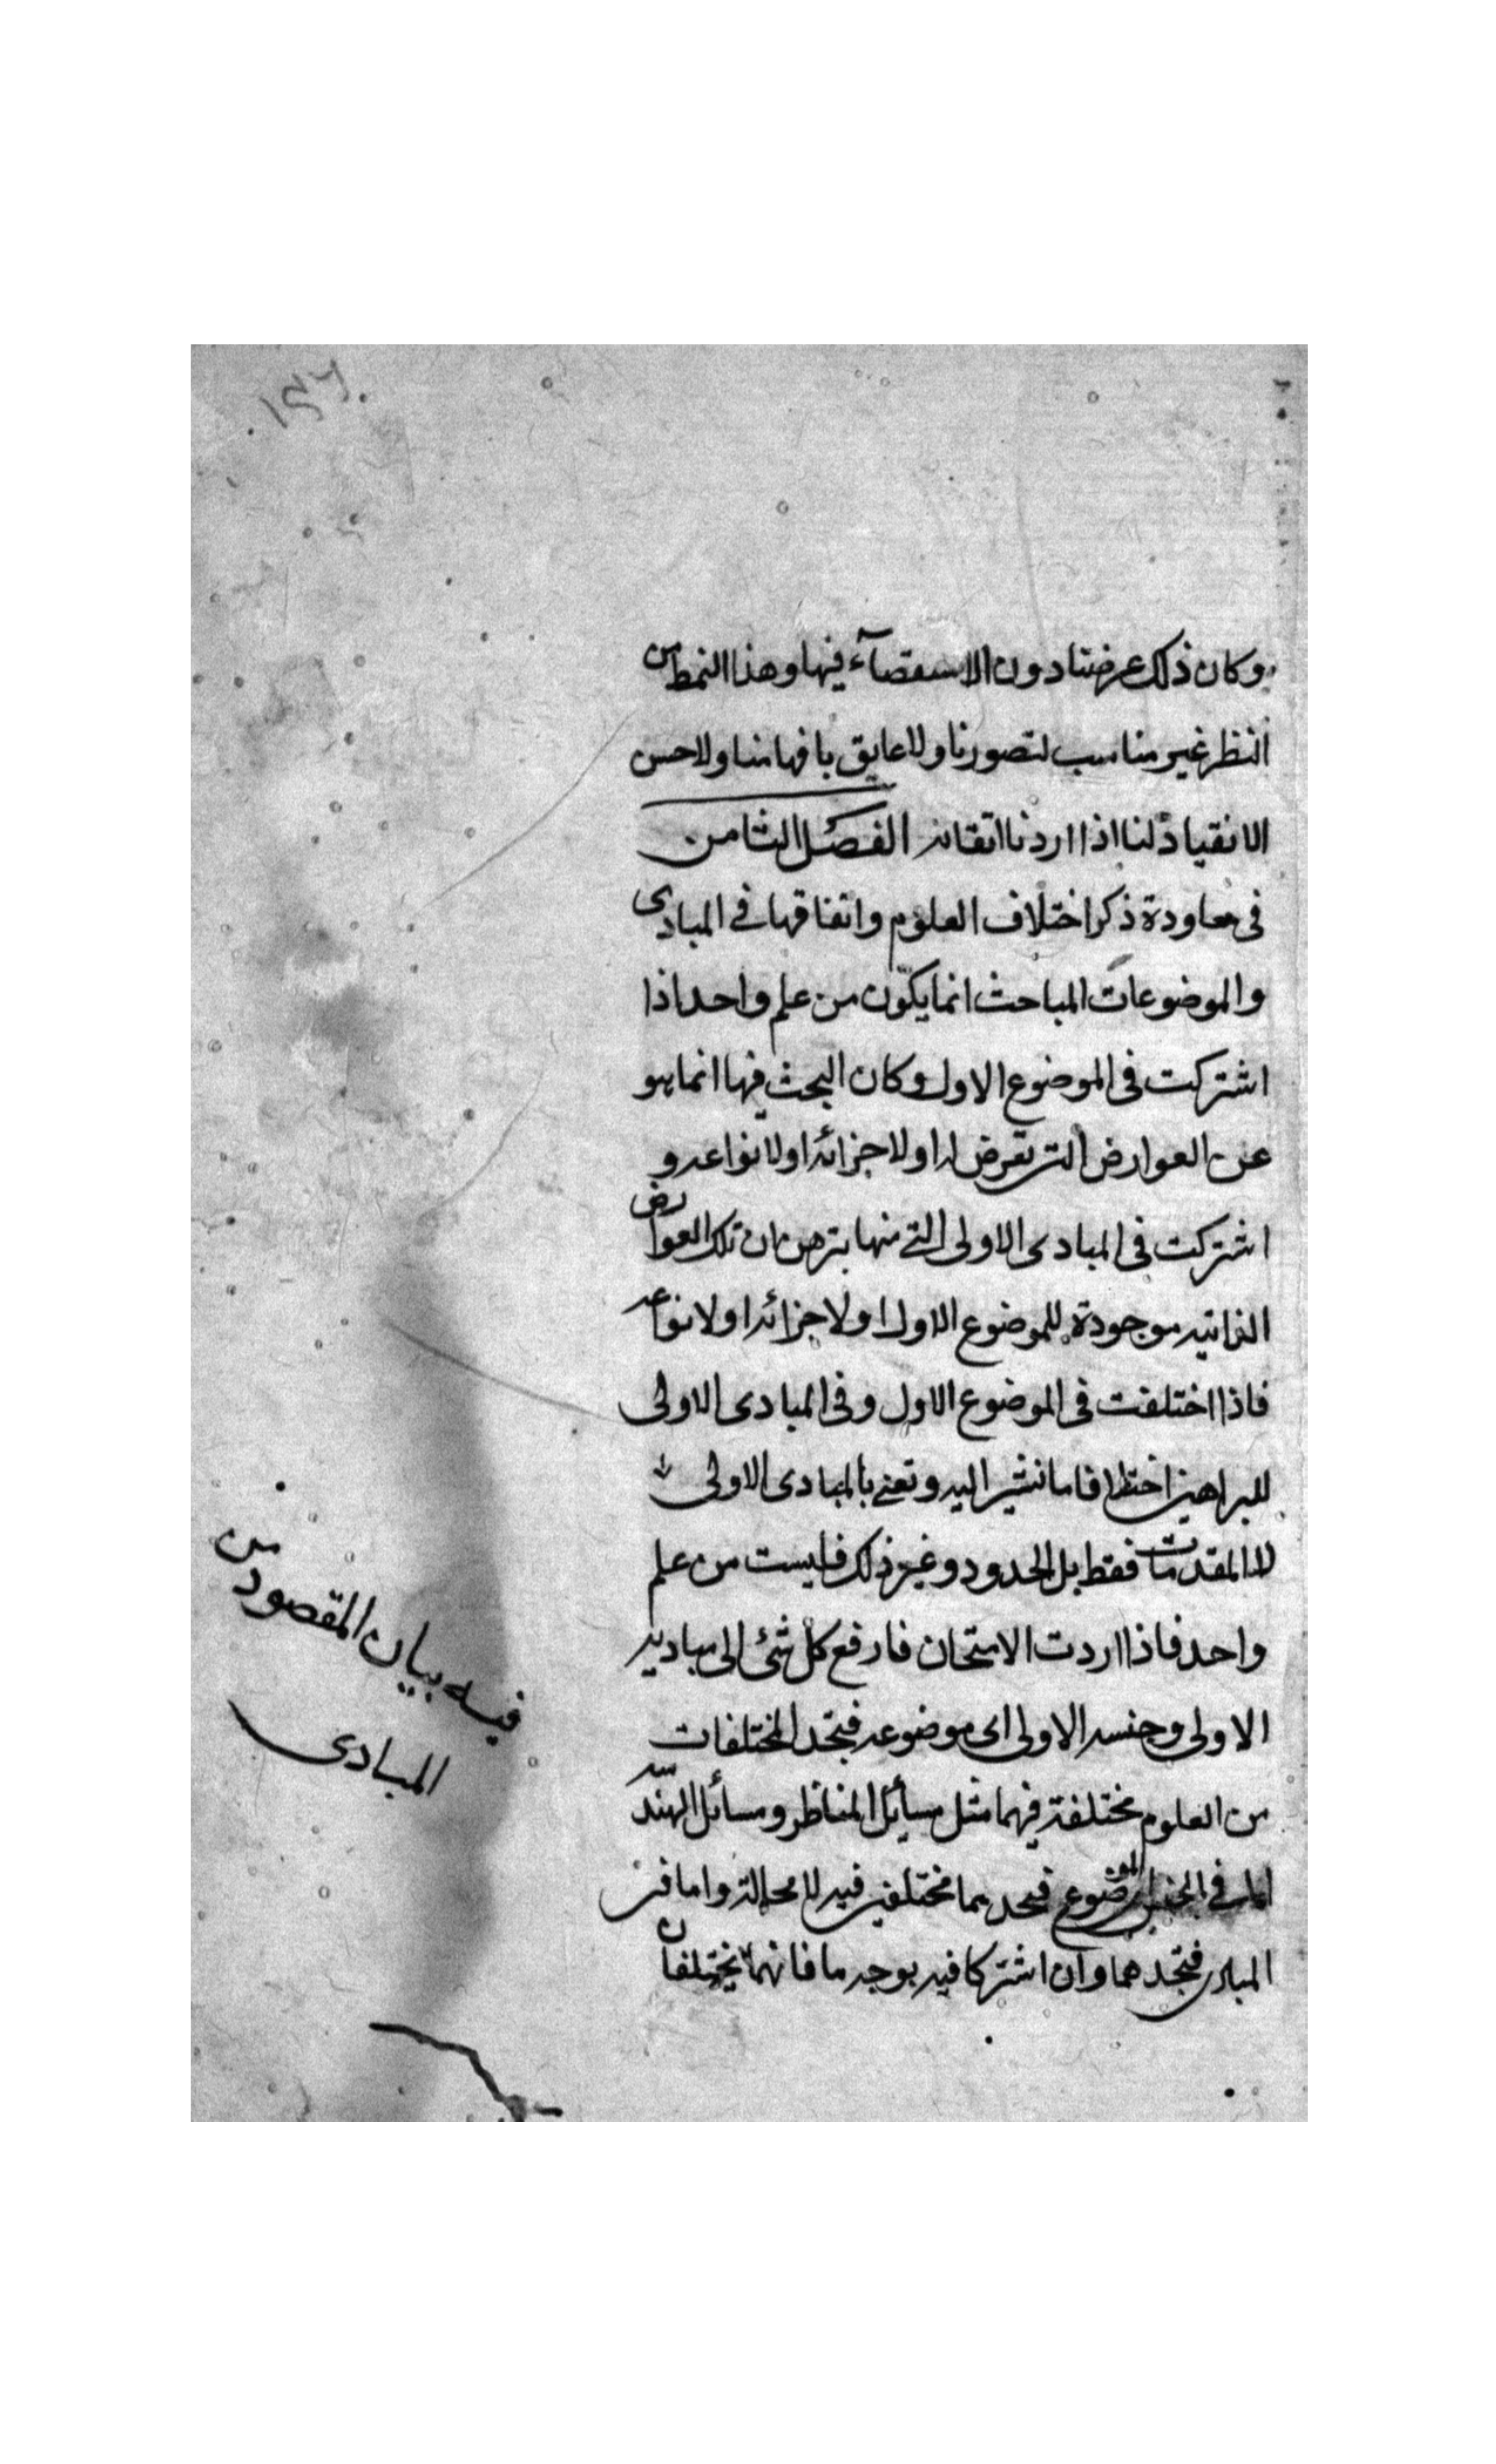 ١٤٦
وكان ذلك عرضنا دون الاستقصآء فيها وهذا النمط من
النظر غير مناسب لتصورنا ولا عايق بافهامنا ولا حسن
الانقياد لنا اذا اردنا اتقانه الفصل الثامن
فى معاودة ذكر اختلاف العلوم واتفاقها فى المبادى
والموضوعات المباحث انما يكون من علم واحد اذا
اشتركت فى الموضوع الاول وكان البحث فيها انما هو
عن العوارض التى تعرض له او لاجزائه او لانواعه و
اشتركت فى المبادى الاولى التى منها يبرهن ان تلك العوارض
الذاتيه موجودة للموضوع الاول او لاجزائه او لانواعه
فاذا اختلفت فى الموضوع الاول وفى المبادى الاولى
للبراهين اختلافا ما نشير اليه ونعنى بالمبادى الاولى
لا المقدمات فقط بل الحدود وغير ذلك فليست من علم
واحد فاذا اردت الامتحان فارفع كل شئ الى مباديه
الاولى وجنسه الاولى اى موضوعه فتجد المختلفات
من العلوم مختلفة فيهما مثل مسايل المناظر ومسائل الهندسه
اما فى الجنس الموضوع فتجدهما مختلفين فيه لا محالة واما فى
المبادى فتجدهما وان اشتركا فيه بوجه ما فانهما يختلفان
فيه بيان المقصود من
المبادى